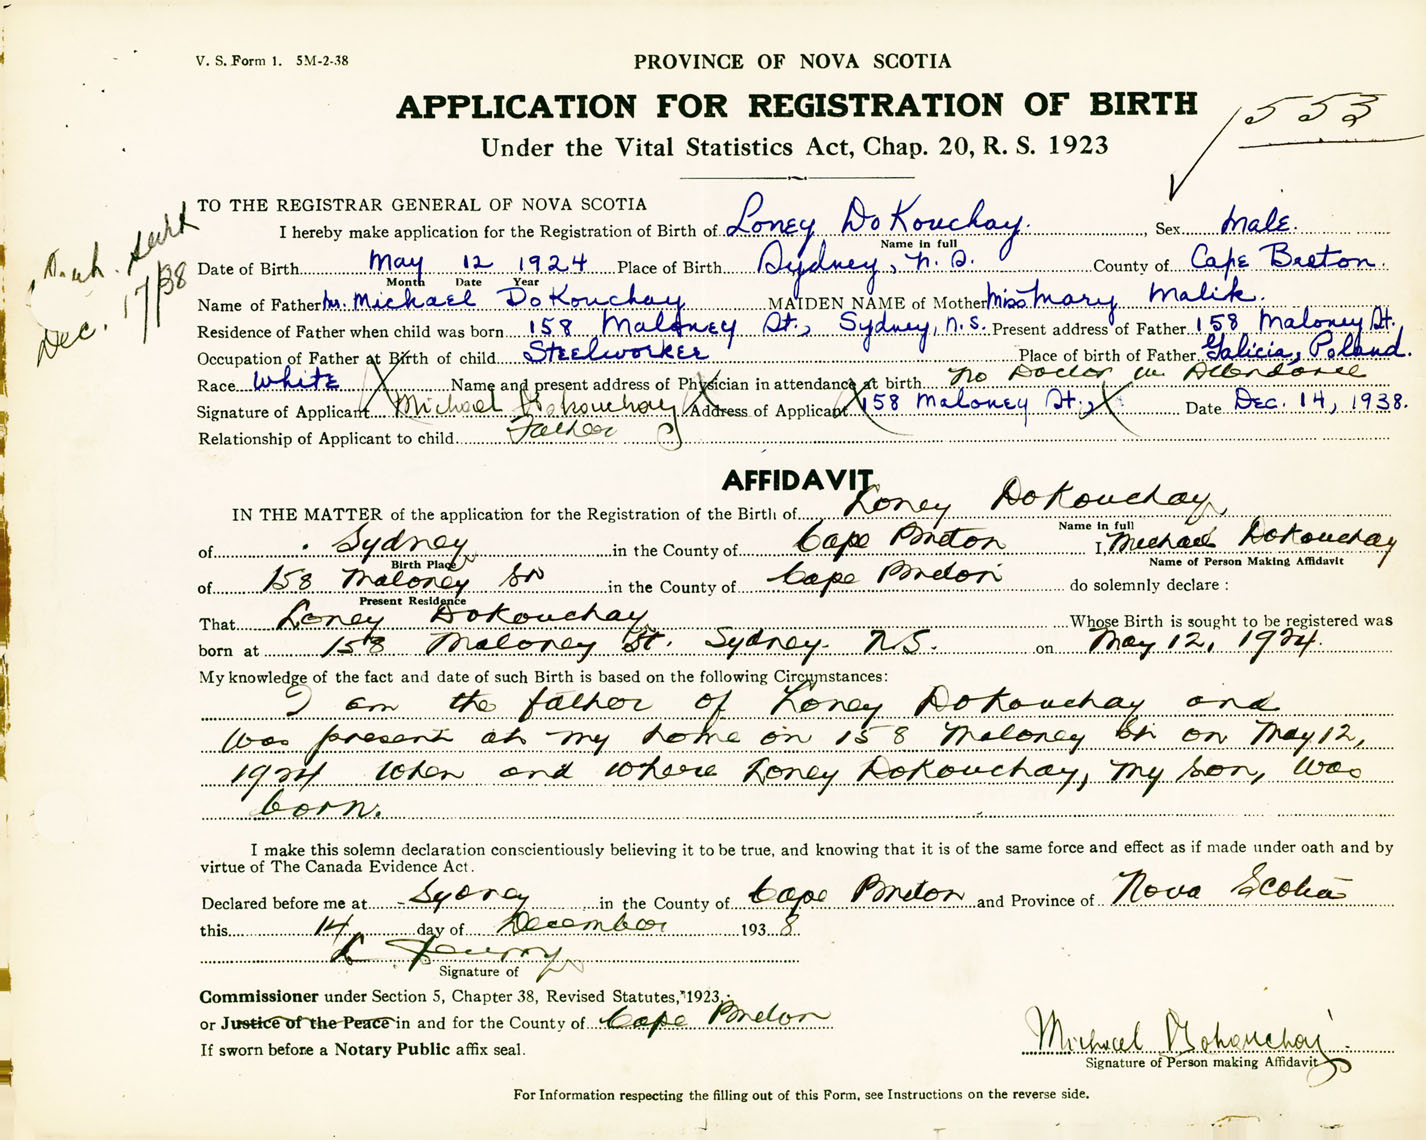 V. S. Form 1. 5M-2-38
PROVINCE OF NOVA SCOTIA
APPLICATION FOR REGISTRATION OF BIRTH
553
Under the Vital Statistics Act, Chap. 20, R. S. 1923
TO THE REGISTRAR GENERAL OF NOVA SCOTIA
I hereby make application for the Registration of Birth of Loney DoKouchay. Sex Male.
Name in full
Dec. 17/38
Date of Birth May 12 1924 Place of Birth Sydney, N.S. County of Cape Breton.
Month Date Year
Name of Father Mr. Michael DoKouchay MAIDEN NAME of Mother Miss Mary Malik.
Residence of Father when child was born 158 Maloney St., Sydney, N.S. Present address of Father 158 Maloney St.,
Occupation of Father at Birth of child Steelworker Place of birth of Father Galicia, Poland.
Race White Name and present address of Physician in attendance at birth No Doctor in Attendance
Signature of Applicant Michael Dokouchay Address of Applicant 158 Maloney St., Date Dec. 14, 1938.
Relationship of Applicant to child Father
AFFIDAVIT
IN THE MATTER of the application for the Registration of the Birth of Loney DoKouchay,
Name in full
of Sydney in the County of Cape Breton I, Michael DoKouchay
Birth Place Name of Person Making Affidavit
of 158 Maloney St in the County of Cape Breton do solemnly declare :
Present Residence
That Loney DoKouchay Whose Birth is sought to be registered was
born at 158 Maloney St. Sydney. N.S. on May 12, 1924.
My knowledge of the fact and date of such Birth is based on the following Circumstances:
I am the father of Loney DoKouchay and
was present at my home on 158 Maloney St on May 12,
1924 when and where Loney DoKouchay, my son, was
born.
I make this solemn declaration conscientiously believing it to be true, and knowing that it is of the same force and effect as if made under oath and by
virtue of The Canada Evidence Act.
Declared before me at Sydney in the County of Cape Breton and Province of Nova Scotia
this 14 day of December 1938
Signature of
Commissioner under Section 5, Chapter 38, Revised Statutes, 1923,
or Justice of the Peace in and for the County of Cape Breton
If sworn before a Notary Public affix seal.
Michael Dokouchay.
Signature of Person making Affidavit
For Information respecting the filling out of this Form, see Instructions on the reverse side.